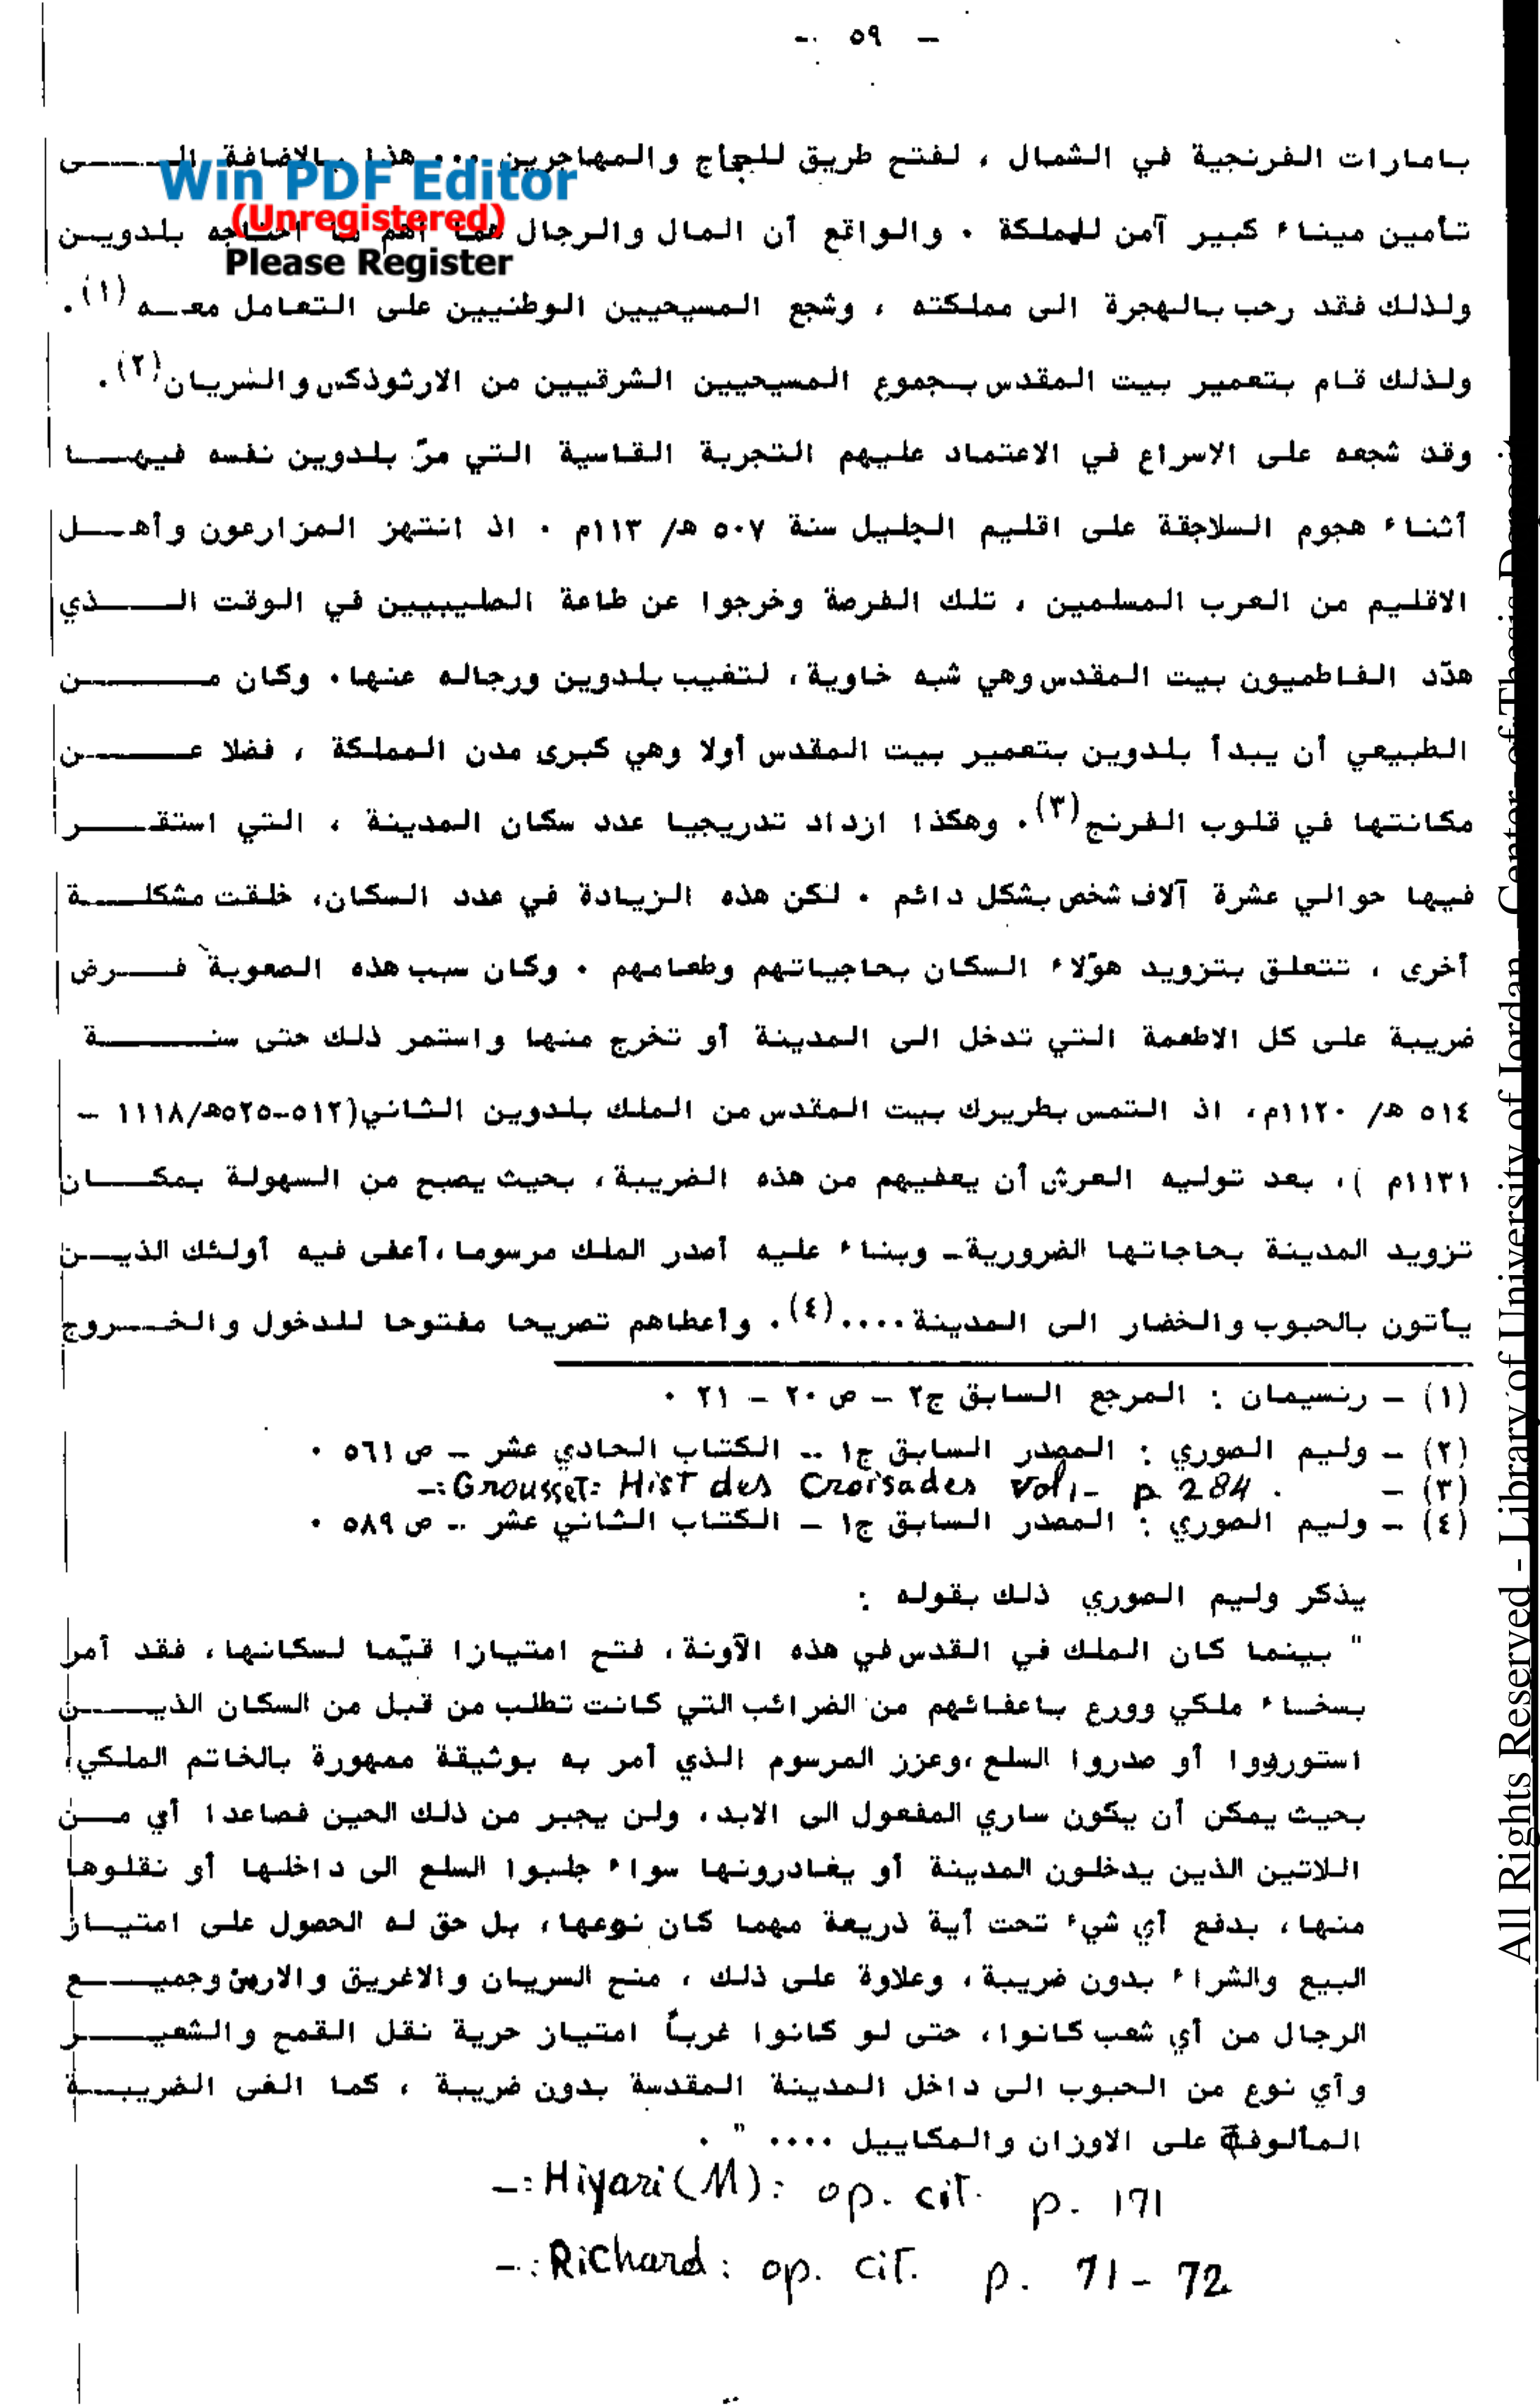 - ٥٩ -
بامارات الفرنجية في الشمال ، لفتح طريق للحجاج والمهاجرين ... هذا بالاضافة الـــى
Win PDF Editor
(Unregistered)
Please Register
تأمين ميناء كبير آمن للمملكة . والواقع أن المال والرجال هما أهم ما احتاجه بلدويـن
ولذلك فقد رحب بالهجرة الى مملكته ، وشجع المسيحيين الوطنيين على التعامل معـه (١).
ولذلك قام بتعمير بيت المقدس بجموع المسيحيين الشرقيين من الارثوذكس والسريان(٢).
وقد شجعه على الاسراع في الاعتماد عليهم التجربة القاسية التي مرّ بلدوين نفسه فيهـــا
أثناء هجوم السلاجقة على اقليم الجليل سنة ٥٠٧ ه/ ١١٣م . اذ انتهز المزارعون وأهــل
الاقليم من العرب المسلمين ، تلك الفرصة وخرجوا عن طاعة الصليبيين في الوقت الـــذي
هدّد الفاطميون بيت المقدس وهي شبه خاوية، لتغيب بلدوين ورجاله عنها. وكان مــــن
الطبيعي أن يبدأ بلدوين بتعمير بيت المقدس أولا وهي كبرى مدن المملكة ، فضلا عــــن
مكانتها في قلوب الفرنج(٣). وهكذا ازداد تدريجيا عدد سكان المدينة ، التي استقـــر
فيها حوالي عشرة آلاف شخص بشكل دائم . لكن هذه الزيادة في عدد السكان، خلقت مشكلـــة
أخرى ، تتعلق بتزويد هؤلاء السكان بحاجياتهم وطعامهم . وكان سبب هذه الصعوبة فـــرض
ضريبة على كل الاطعمة التي تدخل الى المدينة أو تخرج منها واستمر ذلك حتى سنـــــة
٥١٤ ه/ ١١٢٠م، اذ التمس بطريرك بيت المقدس من الملك بلدوين الثاني(٥١٢-٥٢٥ه/١١١٨ -
١١٣١م )، بعد توليه العرش أن يعفيهم من هذه الضريبة، بحيث يصبح من السهولة بمكــان
تزويد المدينة بحاجاتها الضرورية- وبناء عليه أصدر الملك مرسوما،أعفى فيه أولئك الذيــن
يأتون بالحبوب والخضار الى المدينة....(٤). وأعطاهم تصريحا مفتوحا للدخول والخـــروج
(١) - رنسيمان : المرجع السابق ج٢ - ص ٢٠ - ٢١ .
(٢) - وليم الصوري : المصدر السابق ج١ - الكتاب الحادي عشر - ص ٥٦١ .
(٣) - -: Grousset: Hist des Croisades Vol 1- p 284 .
(٤) - وليم الصوري : المصدر السابق ج١ - الكتاب الثاني عشر - ص ٥٨٩ .
يذكر وليم الصوري ذلك بقوله :
" بينما كان الملك في القدس في هذه الآونة، فتح امتيازا قيّما لسكانها، فقد أمر
بسخاء ملكي وورع باعفائهم من الضرائب التي كانت تطلب من قبل من السكان الذيـــن
استوردوا أو صدروا السلع ،وعزز المرسوم الذي أمر به بوثيقة ممهورة بالخاتم الملكي،
بحيث يمكن أن يكون ساري المفعول الى الابد، ولن يجبر من ذلك الحين فصاعدا أي مــن
اللاتين الذين يدخلون المدينة أو يغادرونها سواء جلبوا السلع الى داخلها أو نقلوها
منها، بدفع أي شيء تحت أية ذريعة مهما كان نوعها، بل حق له الحصول على امتيــاز
البيع والشراء بدون ضريبة، وعلاوة على ذلك ، منح السريان والاغريق والارمن وجميـــع
الرجال من أي شعب كانوا، حتى لو كانوا غرباً امتياز حرية نقل القمح والشعيـــر
وأي نوع من الحبوب الى داخل المدينة المقدسة بدون ضريبة ، كما الغى الضريبـــة
المألوفة على الاوزان والمكاييل .... " .
-: Hiyari (M): op. cit. p. 171
-: Richard: op. cit. p. 71 - 72
All Rights Reserved - Library of University of Jordan - Center of Thesis Deposit